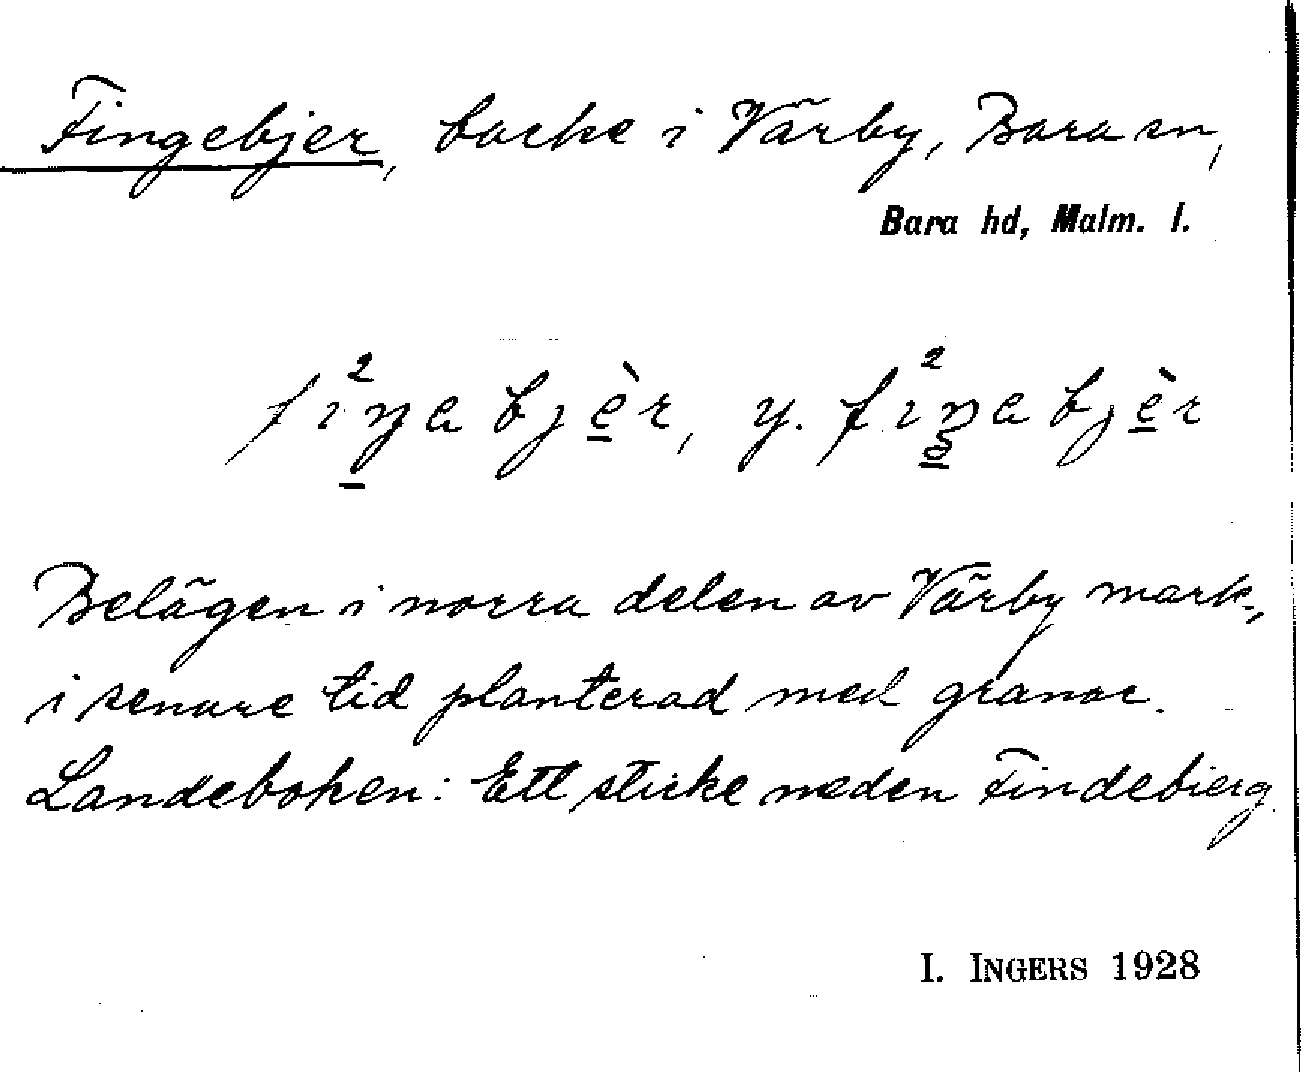 Fingebjer, backe i Värby, Bara sn,
Bara hd, Malm. l.
Belägen i norra delen av Värby mark,
i senare tid planterad med granar.
Landeboken: Ett sticke neden Findebierg
I. INGERS 1928